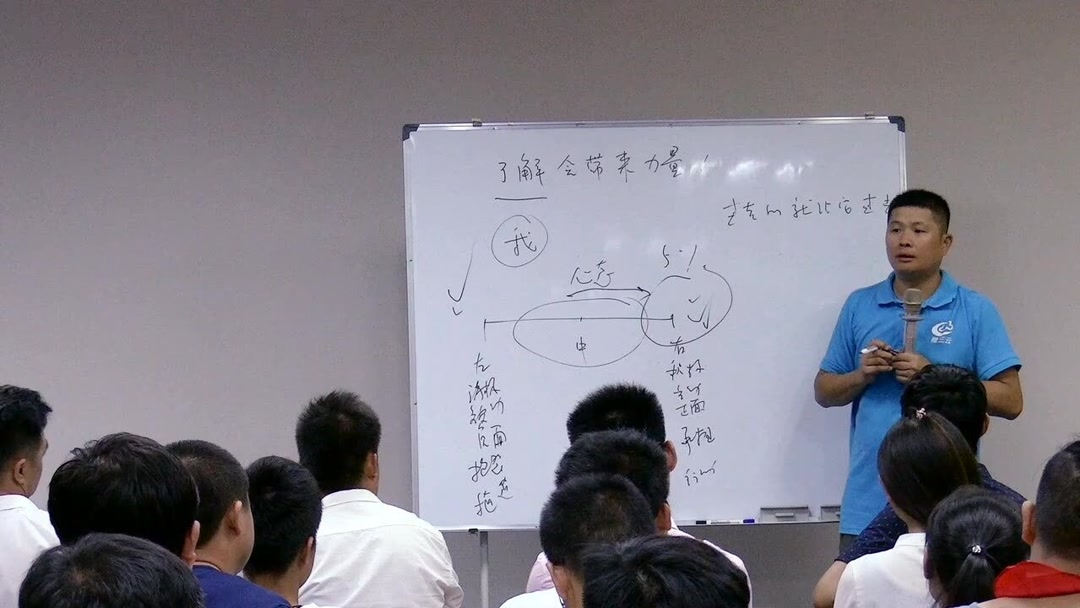 了解会带来力量！
过去的就让它过去
我
心态
5%
中
左
消极
负面
抱怨
拖延
右
积极
主动
正面
承担
行动